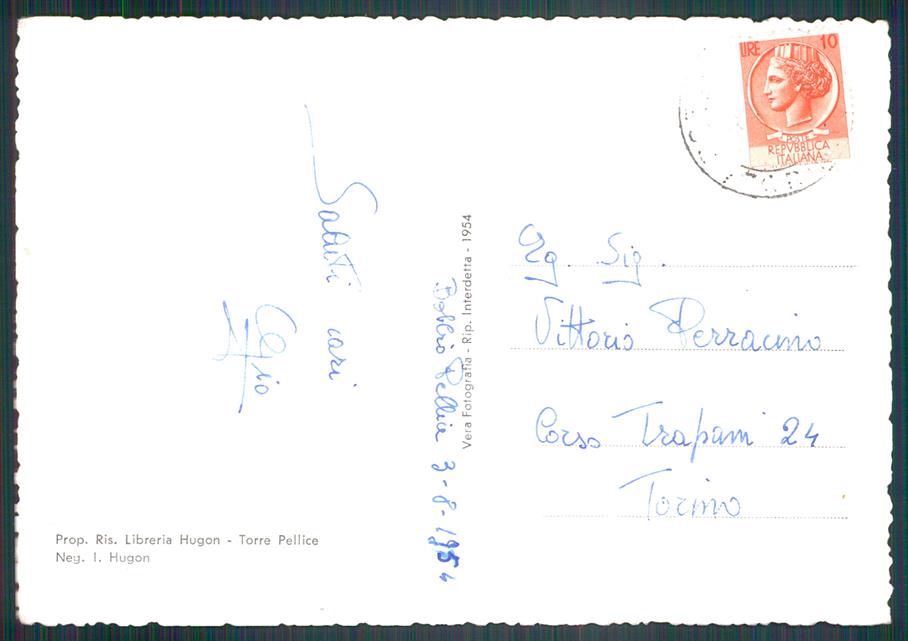 LIRE 10
POSTE
REPVBBLICA
ITALIANA
Saluti cari
Bobbio Pellice 3-8-1954
Vera Fotografia - Rip. Interdetta - 1954
Eg. Sig.
Vittorio Perracino
Corso Trapani 24
Torino
Prop. Ris. Libreria Hugon - Torre Pellice
Neg. I. Hugon